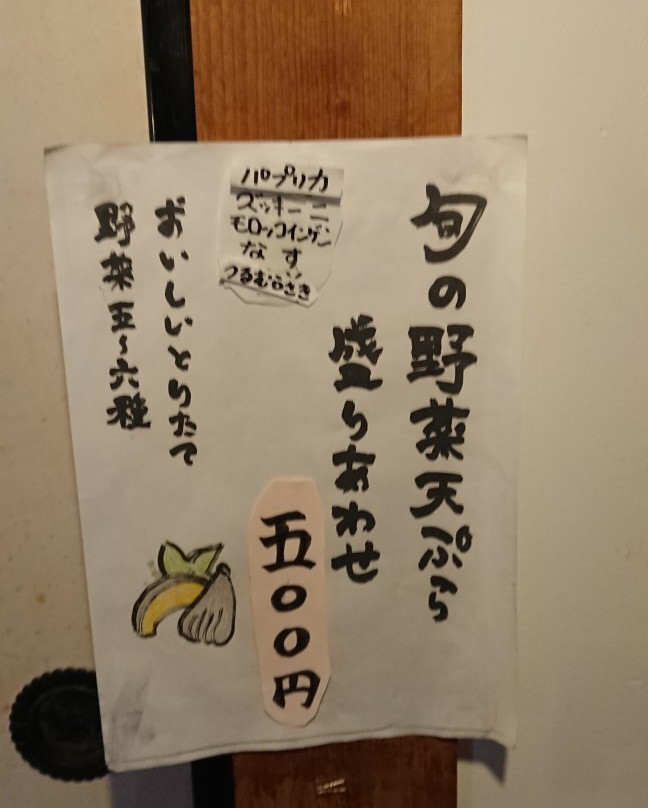 旬の野菜天ぷら
盛りあわせ
五〇〇円
パプリカ
ズッキーニ
モロッコインゲン
なす
つるむらさき
おいしいとりたて
野菜五〜六種